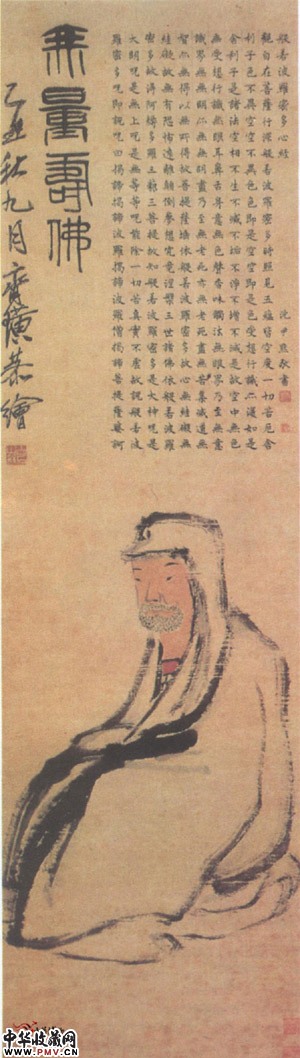 般若波羅密多心經
觀自在菩薩行深般若波羅密多時照見五蘊皆空度一切苦厄舍
利子色不異空空不異色色即是空空即是色受想行識亦復如是
舍利子是諸法空相不生不滅不垢不淨不增不減是故空中無色
無受想行識無眼耳鼻舌身意無色聲香味觸法無眼界乃至無意
識界無無明亦無無明盡乃至無老死亦無老死盡無苦集滅道無
智亦無得以無所得故菩提薩埵依般若波羅密多故心無結礙無
結礙故無有恐怖遠離顛倒夢想究竟涅槃三世諸佛依般若波羅
密多故得阿耨多羅三藐三菩提故知般若波羅密多是大神咒是
大明咒是無上咒是無等等咒能除一切苦真實不虛故說般若波
羅密多咒即說咒曰揭諦揭諦波羅揭諦波羅僧揭諦菩提薩婆訶
無量壽佛
乙丑秋九月齊璜恭繪
中华收藏网
WWW.PMV.CN